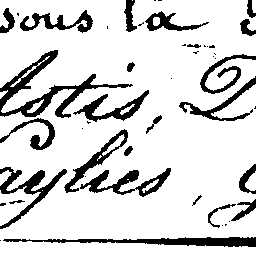 sous la
Astis, D
Caylies,